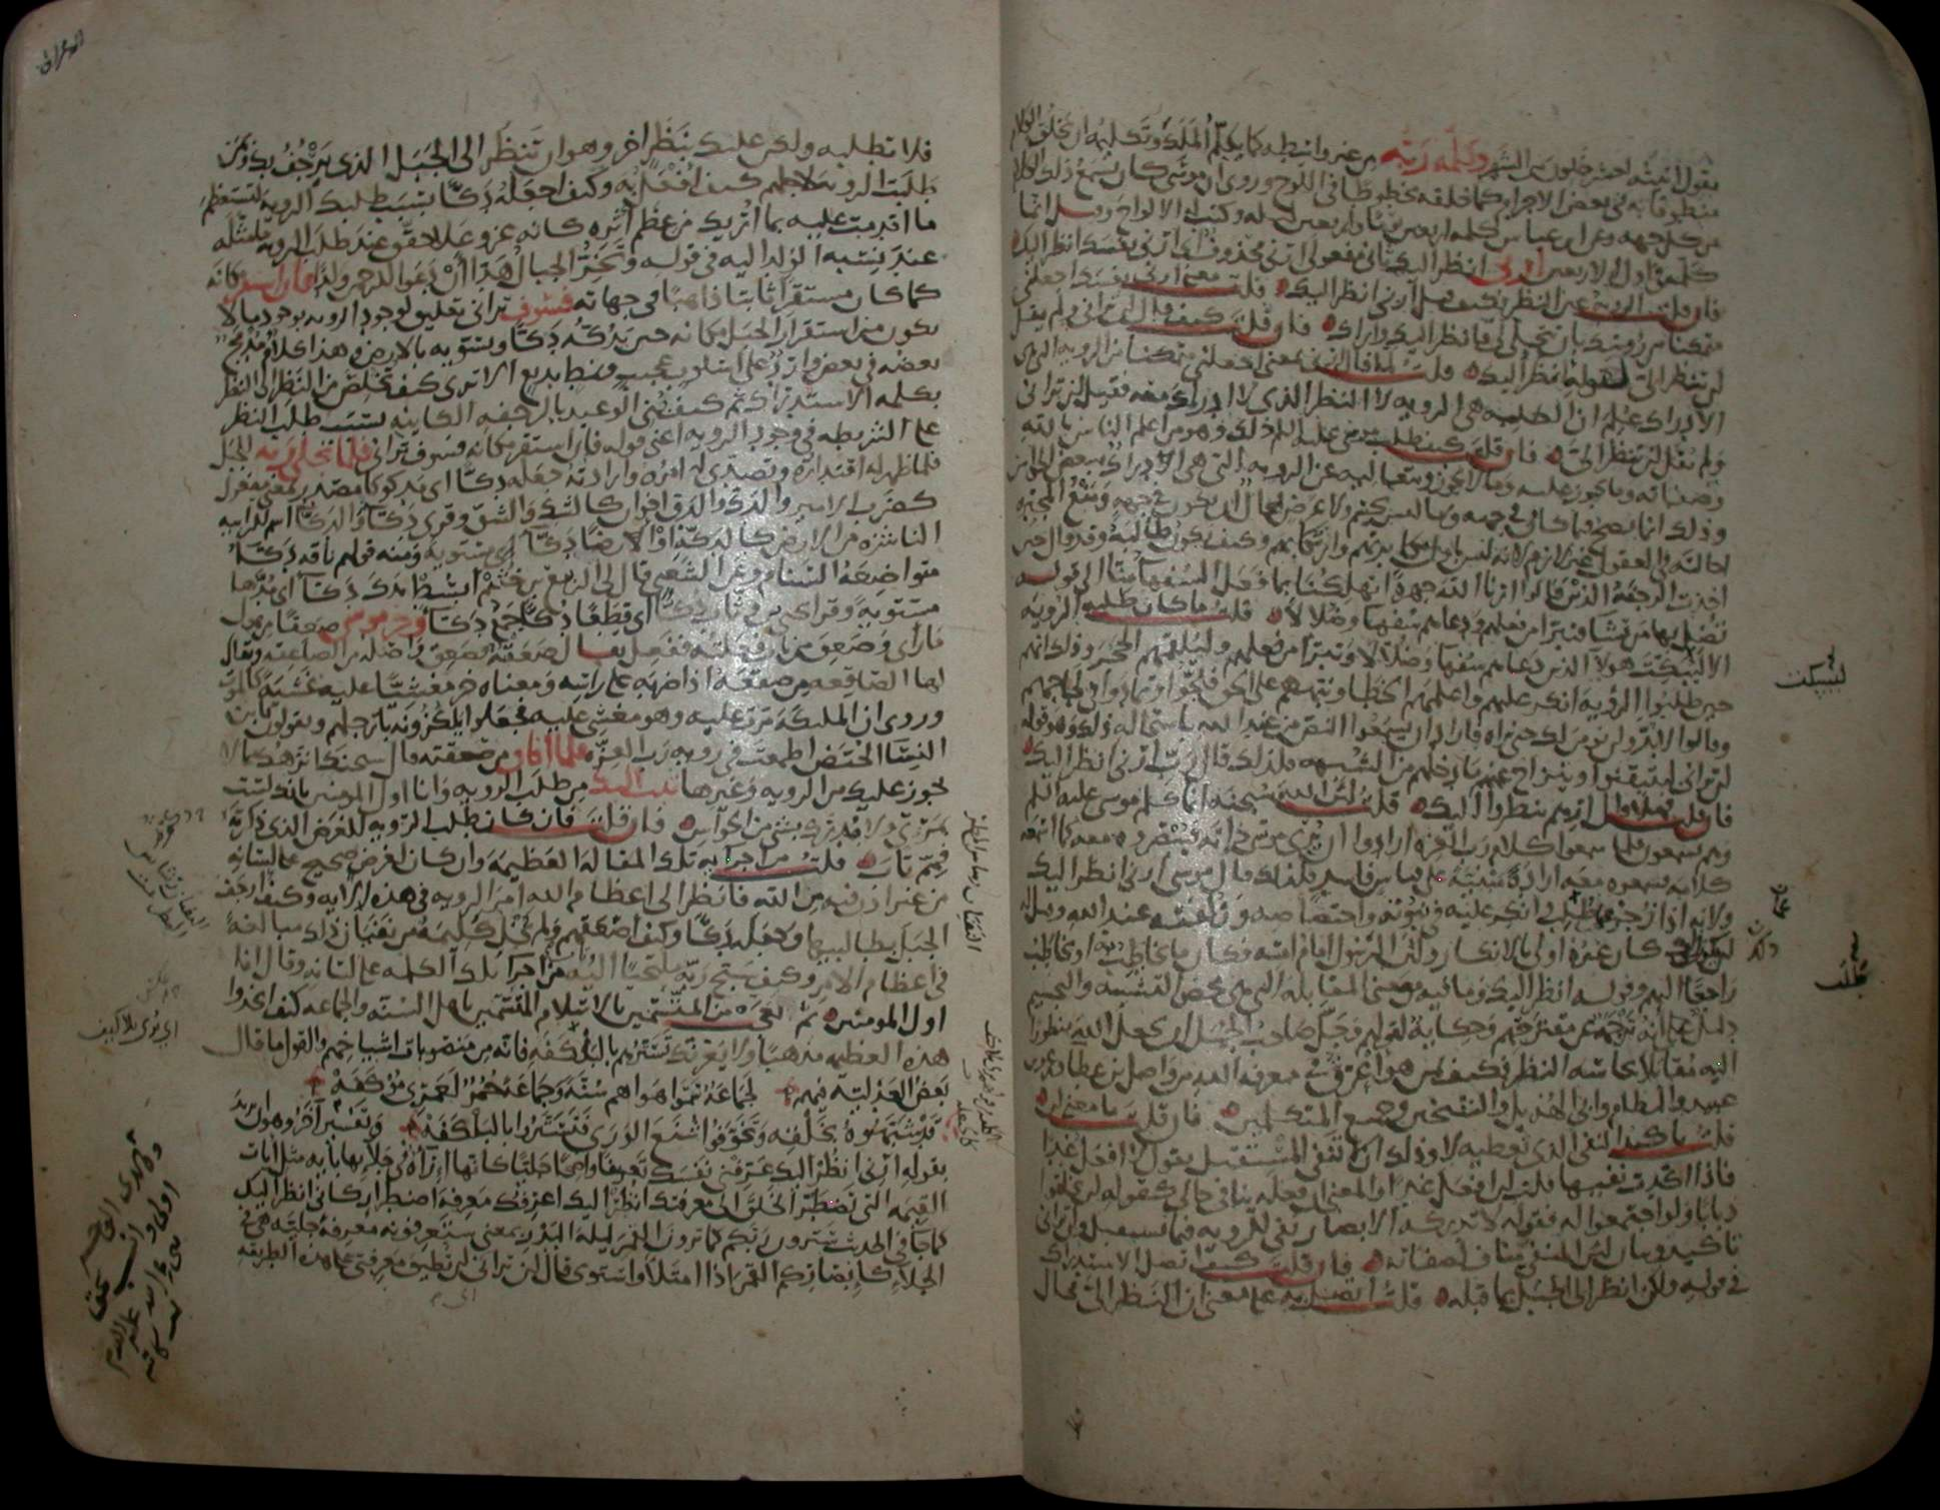 يقول اتيته لعشر خلون من الشهر وكلمه ربه من غير واسطه كما يكلم الملك وتكليمه ان يخلق الكلام
منطوقا به في بعض الاجرام كما خلقه مخطوطا في اللوح وروي ان موسى كان يسمع ذلك الكلام
من كل جهه وعن ابن عباس كلمه اربعين يوما واربعين ليله وكتب له الالواح وقيل انما
كلمه في اول الاربعين ارني انظر اليك ثاني مفعولي ارني محذوف اي ارني نفسك انظر اليك
فان قلت الرويه عين النظر فكيف قيل ارني انظر اليك قلت معنى ارني نفسك اجعلني
متمكنا من رويتك بان تتجلى لي فانظر اليك واراك فان قلت كيف قال لن تراني ولم يقل
لن تنظر الي لقوله انظر اليك قلت لما قال ارني بمعنى اجعلني متمكنا من الرويه التي هي
الادراك علم ان الطلبه هي الرويه لا النظر الذي لا ادراك معه فقيل لن تراني
ولم يقل لن تنظر الي فان قلت كيف طلب موسى عليه السلم ذلك وهو من اعلم الناس بالله
وصفاته وما يجوز عليه وما لا يجوز وبتعاليه عن الرويه التي هي الادراك ببعض الحواس
وذلك انما يصح فيما كان في جهه وما ليس بجسم ولا عرض فمحال ان يكون في جهه ومنع المجبره
احالته في العقول غير لازم لانه ليس باول مكابرتهم وارتكابهم وكيف يكون طالبه وقد قال حين
اخذت الرجفه الذين قالوا ارنا الله جهره اتهلكنا بما فعل السفهاء منا الى قوله
تضل بها من تشا فتبرا من فعلهم ودعاهم سفها وضلالا قلت ما كان طلبه الرويه
الا ليبكت هولا الذين دعاهم سفها وضلالا وتبرا من فعلهم وليلقمهم الحجر وذلك انهم
حين طلبوا الرؤيه انكر عليهم واعلمهم الخطا ونبههم على الحق فلجوا وتمادوا في لجاجهم
وقالوا لا بد ولن نومن لك حتى نراه فاراد ان يسمعوا النص من عند الله باستحاله ذلك وهو قوله
لن تراني ليتيقنوا وينزاح عنهم ما دخلهم من الشبهه فلذلك قال رب ارني انظر اليك
فان قلت فهلا قال ارهم ينظروا اليك قلت لان الله سبحنه انما كلم موسى عليه السلم
وهم يسمعون فلما سمعوا كلام رب العزه ارادوا ان يري موسى ذاته فيبصروه معه كما اسمعه
كلامه فسمعوه معه ارادة مبنيه على قياس فاسد فلذلك قال موسى ارني انظر اليك
ولانه اذا زجر عما طلب وانكر عليه في نبوته واختصاصه وزلفته عند الله وقيل له
لن يكون ذلك كان غيره اولى بالانكار ولان الرسول امام امته فكان ما يخاطب به او يخاطب
راجعا اليهم وقوله انظر اليك وما فيه من معنى المقابله التي هي محض التشبيه والتجسيم
دليل على انه ترجمة عن مقترحهم وحكاية لقولهم وجل صاحب الجمل ان يجعل الله منظورا
اليه مقابلا بحاسه النظر فكيف بمن هو اعرق في معرفه الله من واصل بن عطا وعمرو بن
عبيد والنظام وابي الهذيل والشيخين وجميع المتكلمين فان قلت ما معنى لن
قلت تاكيد النفي الذي تعطيه لا وذلك ان لا تنفي المستقبل يقول لا افعل غدا
فاذا اكدت نفيها قلت لن افعل غدا والمعنى ان فعله ينافي حالي كقوله لن يخلقوا
ذبابا ولو اجتمعوا له فقوله لا تدركه الابصار نفي للرويه فيما يستقبل ولن تراني
تاكيد وبيان لان المنفي مناف لصفاته فان قلت كيف اتصل الاستدراك
في قوله ولكن انظر الى الجبل بما قبله قلت اتصل به على معنى ان النظر الي محال
ليبكت
طلب
فلا تطلبه ولكن عليك بنظر اخر وهو ان تنظر الى الجبل الذي يرجف بك وبمن
طلبت الرويه لاجلهم كيف افعل به وكيف اجعله دكا بسبب طلبك الرويه لتستعظم
ما اقدمت عليه بما اريك من عظم اثره كانه عز وعلا حقق عند طلب الرويه ما مثله
عند نسبه الولد اليه في قوله وتخر الجبال هدا ان دعوا للرحمن ولدا فان استقر مكانه
كما كان مستقرا ثابتا ذاهبا في جهاته فسوف تراني تعليق لوجود الرويه بوجود ما لا
يكون من استقرار الجبل مكانه حين يدكه دكا ويسويه بالارض وهذا كلام مدمج
بعضه في بعض وارد على اسلوب عجيب ونمط بديع الا ترى كيف تخلص من النظر الى النظر
بكلمه الاستدراك ثم كيف بنى الوعيد بالرجفه الكاينه بسبب طلب النظر
على الشريطه في وجود الرويه اعني قوله فان استقر مكانه فسوف تراني فلما تجلى ربه للجبل
فلما ظهر له اقتداره وتصدى له امره وارادته جعله دكا اي مدكوكا مصدر بمعنى مفعول
كضرب الامير والدك والدق اخوان كالشك والشق وقري دكاء والدكاء اسم للرابيه
الناشزه من الارض كالدكه او الارضا دكاء اي مستويه ومنه قولهم ناقه دكاء
متواضعة السنام وعن الشعبي قال لي الربيع بن خثيم ابسط يدك دكاء اي مدها
مستويه وقرا يحيى بن وثاب دكا اي قطعا دكا جمع دكاء وخر موسى صعقا من هول
ما راى وصعق من باب فعلته ففعل يقال صعقه فصعق واصله من الصاعقه ويقال
لها الصاقعه من صقعه اذا ضربه على راسه ومعناه خر مغشيا عليه غشية كالموت
وروي ان الملئكه مرت عليه وهو مغشي عليه فجعلوا يلكزونه بارجلهم ويقولون يا ابن
النسا الحيض اطمعت في رويه رب العزه فلما افاق من صعقته قال سبحنك انزهك مما لا
يجوز عليك من الرويه وغيرها تبت اليك من طلب الرويه وانا اول المومنين بانك لست
بمرئي ولا مدرك بشي من الحواس فان قلت فان كان طلب الرويه للغرض الذي ذكرته
فمم تاب قلت من اجرايه تلك المقاله العظيمه وان كان لغرض صحيح على لسانه
من غير اذن فيه من الله فانظر الى اعظام الله امر الرويه في هذه الايه وكيف ارجف
الجبل بطالبيها وجعله دكا وكيف اصعقهم ولم يخل كليمه من نفيان ذلك مبالغة
في اعظام الامر وكيف سبح ربه ملتجيا اليه من اجرا تلك الكلمه على لسانه وقال انا
اول المومنين ثم تعجب من المتسمين بالاسلام المتسمين باهل السنه والجماعه كيف اتخذوا
هذه العظيمه مذهبا ولا يغرنك تسترهم بالبلكفه فانه من منصوبات اشياخهم والقول ما قال
بعض العدليه فيهم لجماعة سموا هواهم سنة وجماعة حمر لعمري مؤكفه
قد شبهوه بخلقه وتخوفوا شنع الورى فتستروا بالبلكفه وتفسير اخر وهو ان يريد
بقوله ارني انظر اليك عرفني نفسك تعريفا واضحا جليا كانها اراه في جلايها بايه مثل ايات
القيمه التي تضطر الخلق الى معرفتك انظر اليك اعرفك معرفه اضطرار كاني انظر اليك
كما جا في الحديث سترون ربكم كما ترون القمر ليله البدر بمعنى ستعرفونه معرفة جليه هي في
الجلا كابصاركم القمر اذا امتلا واستوى قال لن تراني لن تطيق معرفتي على هذه الطريقه
اي يرى بلا كيف